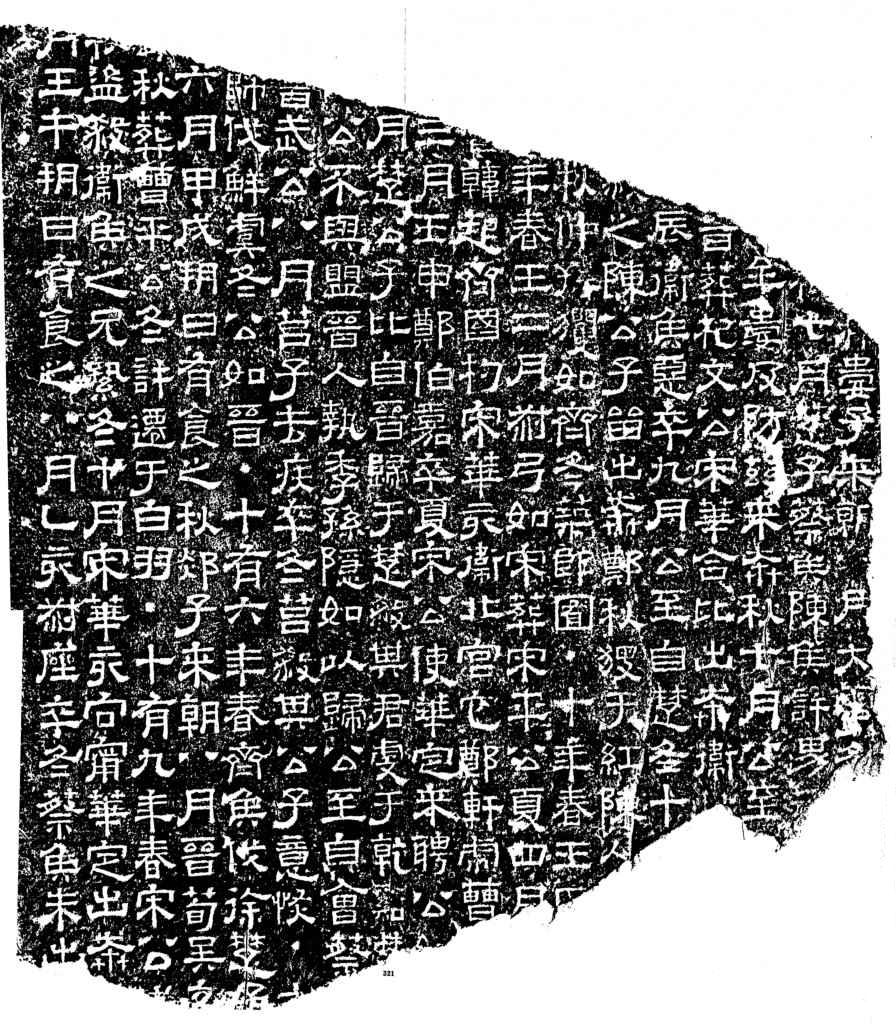 婁子來朝 月大雩冬
七月楚子蔡侯陳侯許男
牟婁及防茲來奔秋七月公至
葬杞文公宋華合比出奔衛
辰衛侯惡卒九月公至自楚冬十
之陳公子留出奔鄭秋蒐于紅陳人
秋仲孫貜如齊冬築郎囿·十年春王正
年春王二月叔弓如宋葬宋平公夏四月
韓起齊國酌宋華亥衛北宮佗鄭軒虎曹
三月壬申鄭伯嘉卒夏宋公使華定來聘公
月楚公子比自晉歸于楚弒其君虔于乾谿楚
公不與盟晉人執季孫隱如以歸公至自會蔡
曹武公八月莒子去疾卒冬莒殺其公子意恢·十
帥伐鮮虞冬公如晉·十有六年春齊侯伐徐楚子
六月甲戌朔日有食之秋郯子來朝八月晉荀吳帥
秋葬曹平公冬許遷于白羽·十有九年春宋公伐
秋盜殺衛侯之兄縶冬十月宋華亥向甯華定出奔
月壬午朔日有食之八月乙亥叔痤卒冬蔡侯朱出
321